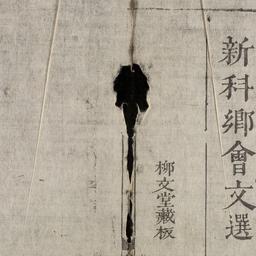 新科鄉會文選
柳文堂藏板